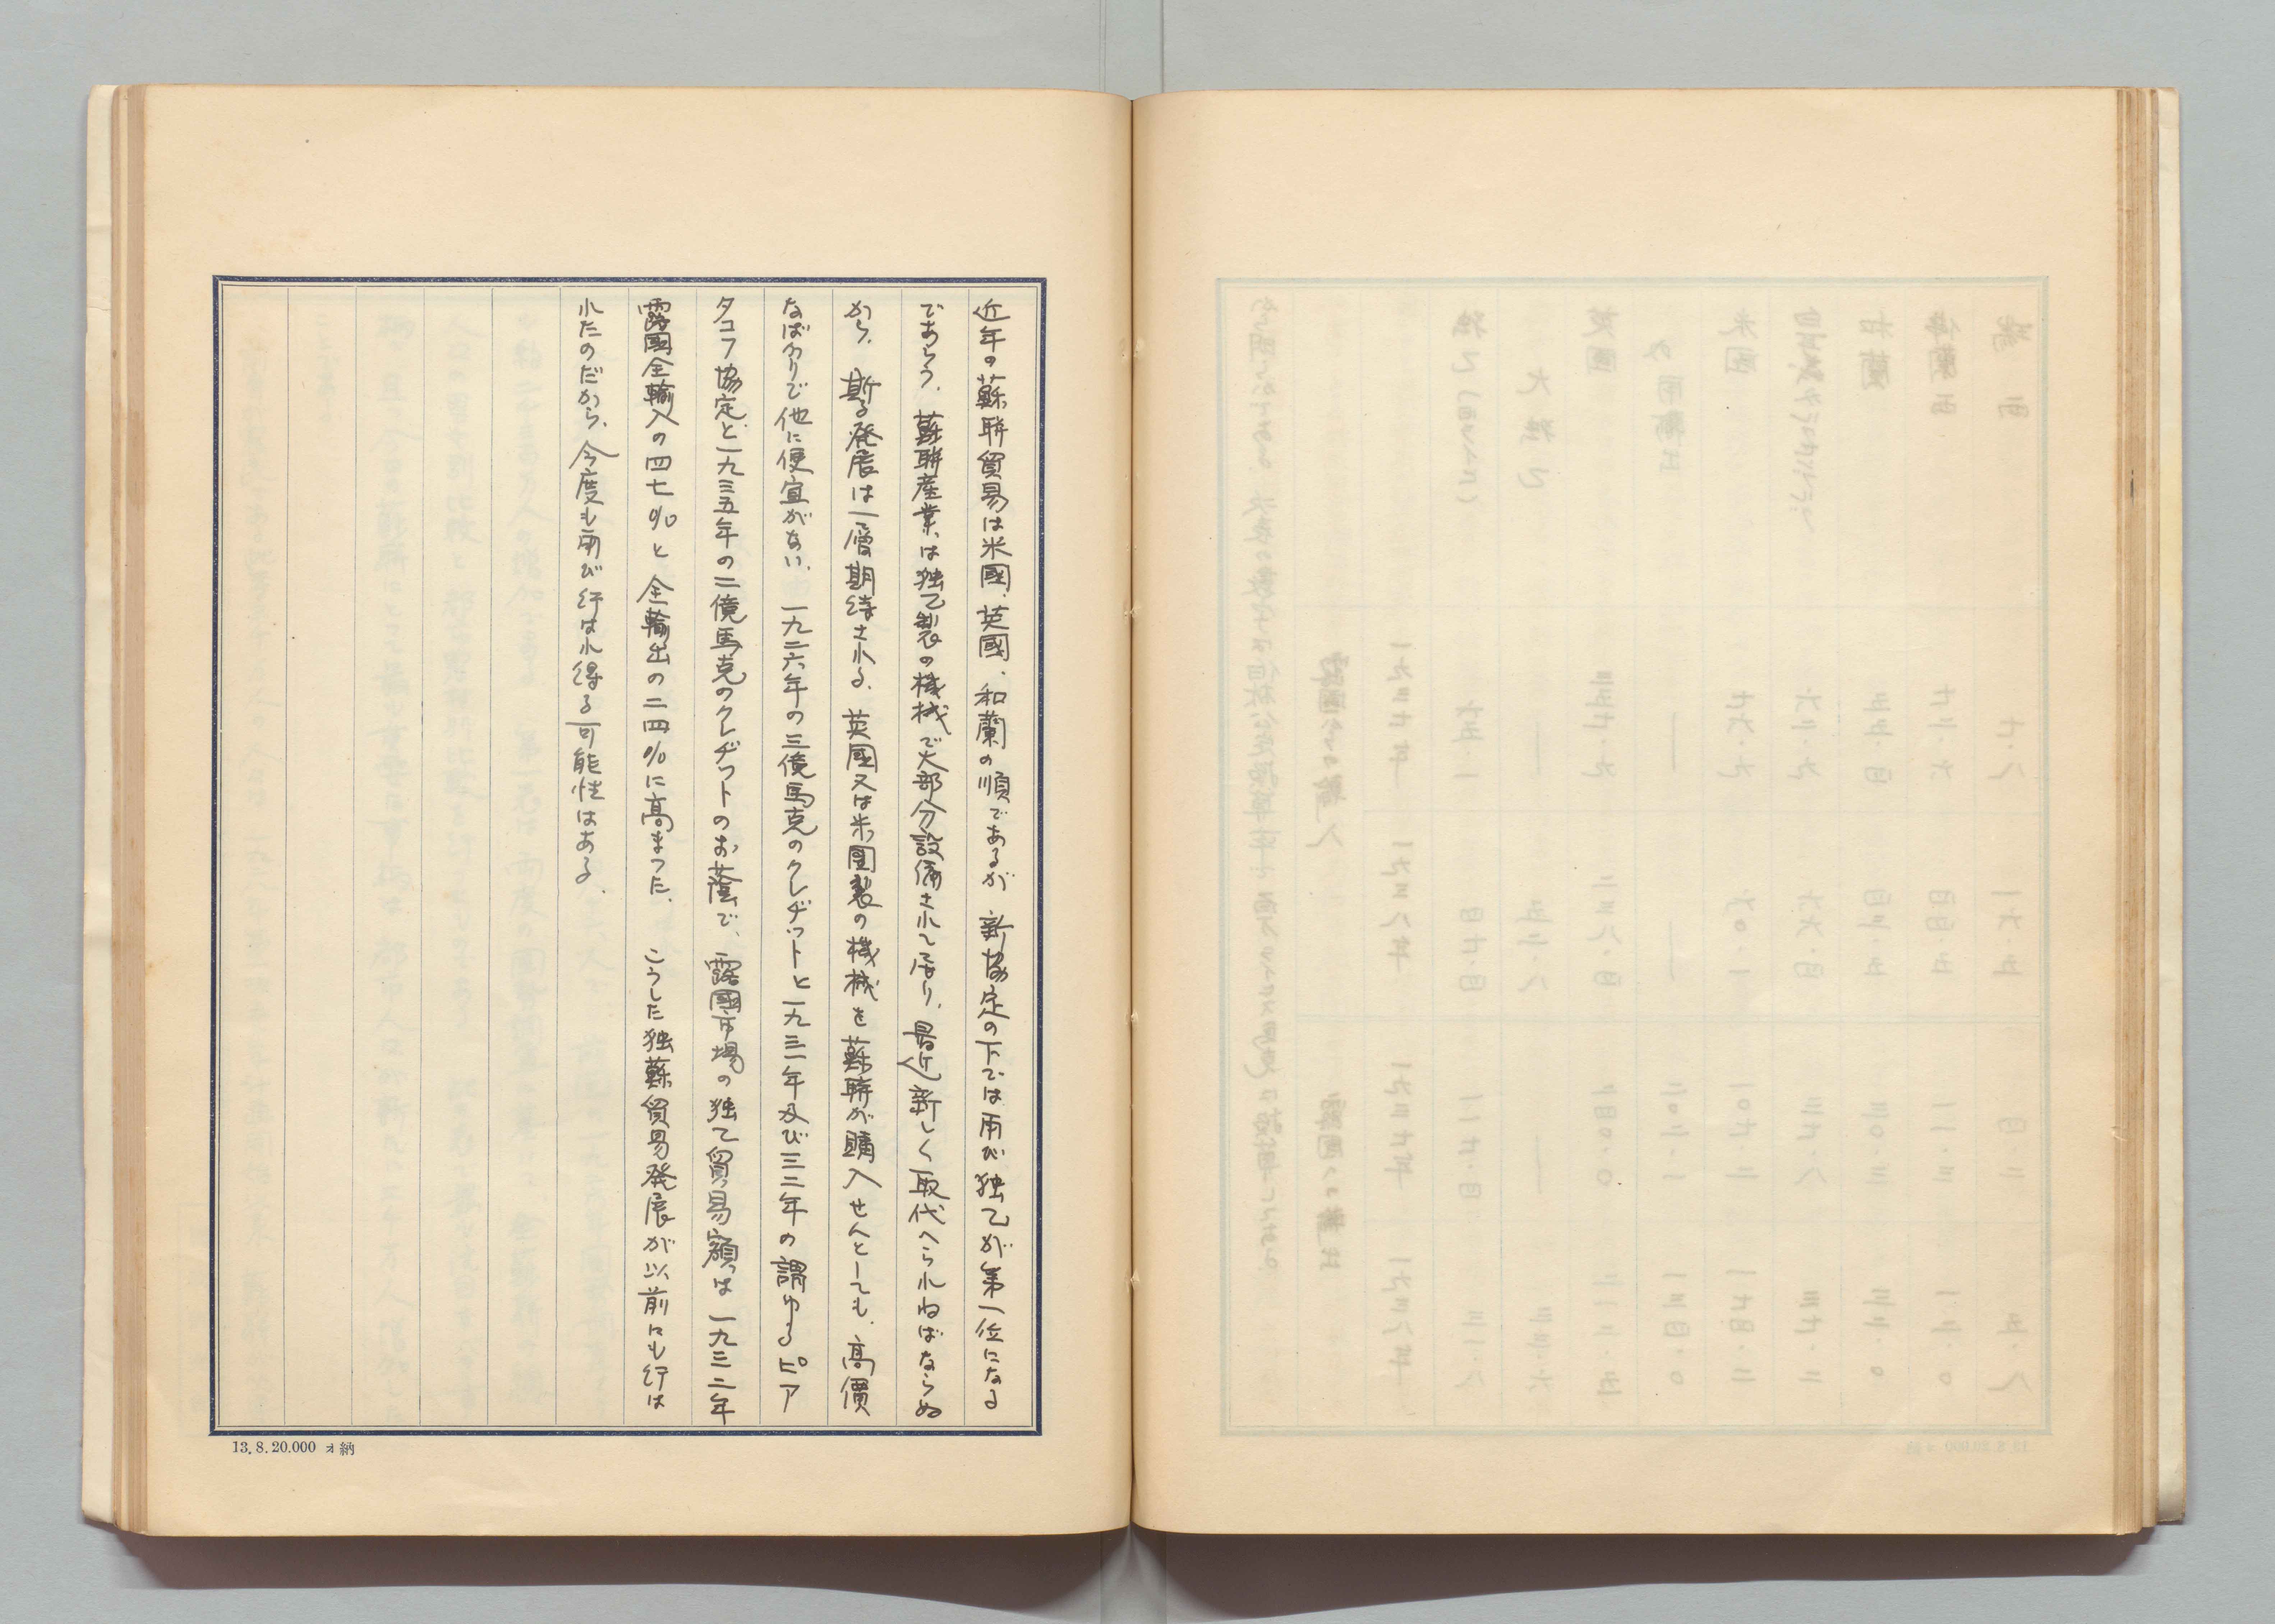 近年の蘇聯貿易は米國、英國、和蘭の順であるが 新協定の下では再び独乙が第一位になる
であらう、蘇聯産業は独乙製の機械で大部分設備されて居り、最近新しく取代へられねばならぬ
から、斯る発展は一層期待される、英國又は米國製の機械を蘇聯が購入せんとしても、高價
なばかりで他に便宜がない、一九二六年の三億馬克のクレヂットと一九三一年及び三二年の謂ゆるピア
タコフ協定と一九三五年の二億馬克のクレヂットのお蔭で、露國市場の独乙貿易額は一九三二年
露國全輸入の四七%と全輸出の二四%に高まつた、こうした独蘇貿易発展が以前にも行は
れたのだから、今度も再び行はれ得る可能性はある、
13.8.20.000 ォ納